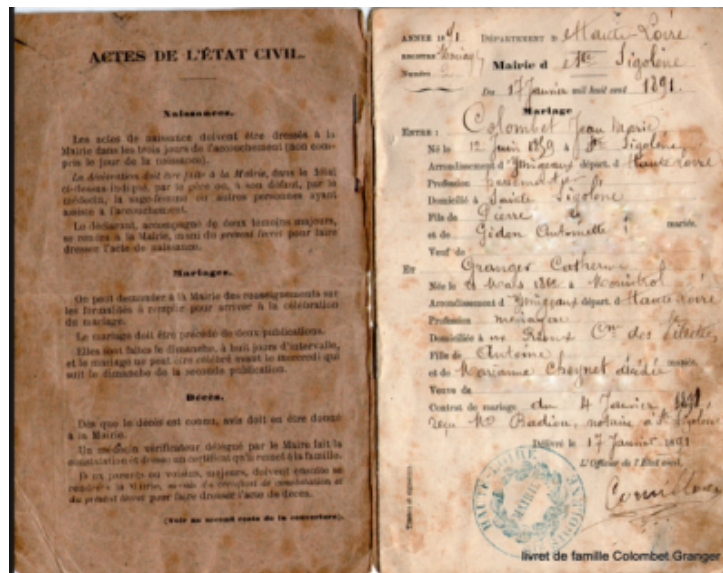 ACTES DE L'ÉTAT CIVIL.
Naissances.
Les actes de naissance doivent être dressés à la
Mairie dans les trois jours de l'accouchement (non com-
pris le jour de la naissance).
La déclaration doit être faite à la Mairie, dans le délai
ci-dessus indiqué, par le père ou, à son défaut, par le
médecin, la sage-femme ou autres personnes ayant
assisté à l'accouchement.
Le déclarant, accompagné de deux témoins majeurs,
se rendra à la Mairie, muni du présent livret pour faire
dresser l'acte de naissance.
Mariages.
On peut demander à la Mairie des renseignements sur
les formalités à remplir pour arriver à la célébration
du mariage.
Le mariage doit être précédé de deux publications.
Elles sont faites le dimanche, à huit jours d'intervalle,
et le mariage ne peut être célébré avant le mercredi qui
suit le dimanche de la seconde publication.
Décès.
Dès que le décès est connu, avis doit en être donné
à la Mairie.
Un médecin vérificateur délégué par le Maire fait la
constatation et dresse un certificat qu'il remet à la famille.
Deux parents ou voisins, majeurs, doivent ensuite se
rendre à la Mairie, munis du certificat de constatation et
du présent livret pour faire dresser l'acte de décès.
(Voir au second recto de la couverture).
ANNÉE 1891 DÉPARTEMENT D Haute-Loire
REGISTRE Mariages
Numéro 2 Mairie d Ste Sigolène
Du 17 Janvier mil huit cent 1891.
Mariage
ENTRE : Colombet Jean Marie
Né le 12 Juin 1859 à Ste Sigolène
Arrondissement d'Yssingeaux départ. d Haute Loire
Profession
Domicilié à Sainte Sigolène
Fils de Pierre
et de Gidon Antoinette mariés.
Veuf de
ET Granger Catherine
Née le Mars à Monistrol
Arrondissement d'Yssingeaux départ. d Haute Loire
Profession ménagère
Domiciliée à Cne des
Fille de Antoine
et de Marianne Cheynet décédée mariés.
Veuve de
Contrat de mariage du 4 Janvier 1891
reçu Me Badiou, notaire à Ste Sigolène
Délivré le 17 Janvier 1891
L'Officier de l'État civil,
HAUTE-LOIRE
MAIRIE
livret de famille Colombet Granger